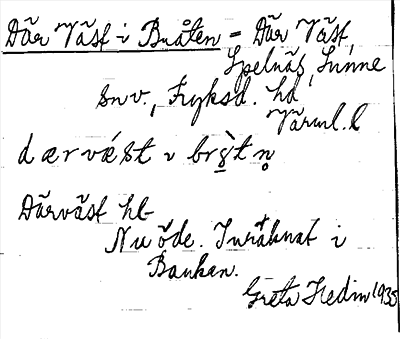 Där Väst i Bråten - Där Väst,
Spelnäs, Sunne
snv., Fryksd. hd
Värml. l
dærvǽst ı brọ̀tn̥
Därväst hl
Nu öde. Inräknat i
Backan.
Greta Hedin 1935